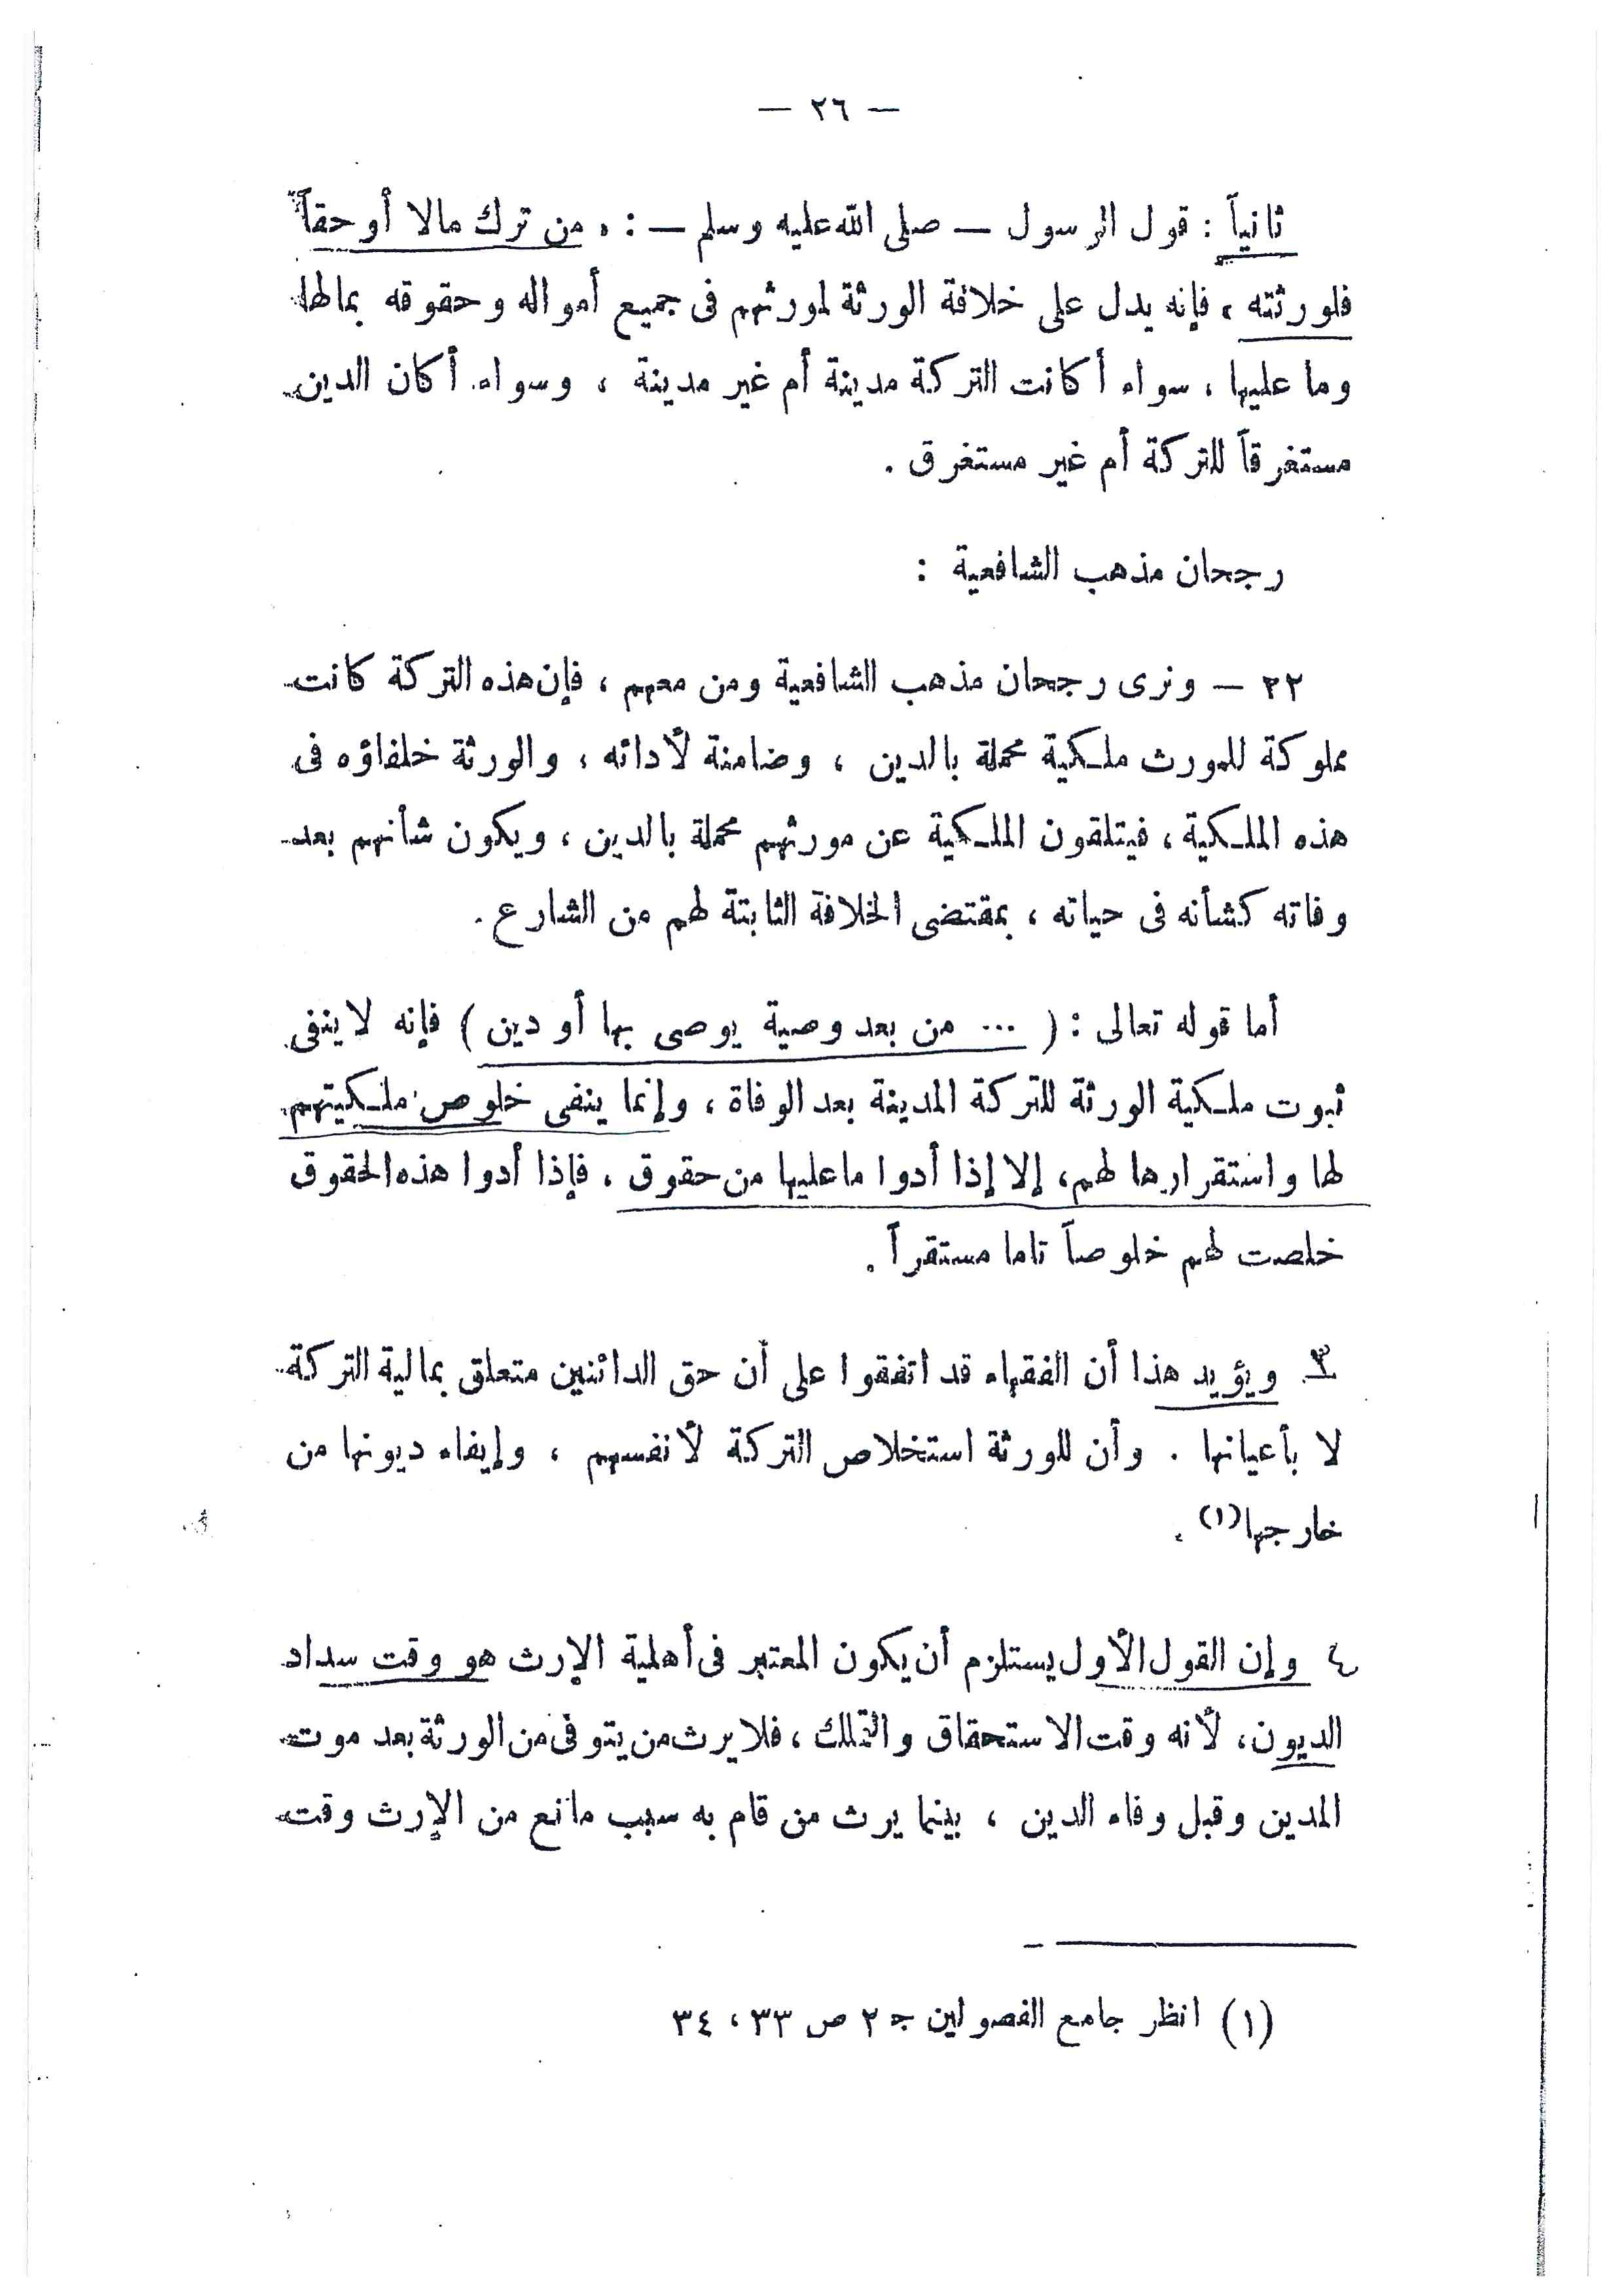 — ٢٦ —
ثانياً : قول الرسول — صلى الله عليه وسلم — : « من ترك مالا أو حقاً
فلورثته » فإنه يدل على خلافة الورثة لمورثهم فى جميع أمواله وحقوقه بمالها
وما عليها ، سواء أكانت التركة مدينة أم غير مدينة ، وسواء أكان الدين
مستغرقاً للتركة أم غير مستغرق .
رجحان مذهب الشافعية :
٢٢ — ونرى رجحان مذهب الشافعية ومن معهم ، فإن هذه التركة كانت
مملوكة للمورث ملكية محملة بالدين ، وضامنة لأدائه ، والورثة خلفاؤه فى
هذه الملكية ، فيتلقون الملكية عن مورثهم محملة بالدين ، ويكون شأنهم بعد
وفاته كشأنه فى حياته ، بمقتضى الخلافة الثابتة لهم من الشارع .
أما قوله تعالى : ( ... من بعد وصية يوصى بها أو دين ) فإنه لا ينفى
ثبوت ملكية الورثة للتركة المدينة بعد الوفاة ، وإنما ينفى خلوص ملكيتهم
لها واستقرارها لهم ، إلا إذا أدوا ما عليها من حقوق . فإذا أدوا هذه الحقوق
خلصت لهم خلوصاً تاما مستقراً .
٣ ويؤيد هذا أن الفقهاء قد اتفقوا على أن حق الدائنين متعلق بمالية التركة
لا بأعيانها . وأن للورثة استخلاص التركة لأنفسهم ، وإيفاء ديونها من
خارجها (١) .
٤ وإن القول الأول يستلزم أن يكون المعتبر فى أهلية الإرث هو وقت سداد
الديون ، لأنه وقت الاستحقاق والتملك ، فلا يرث من يتوفى من الورثة بعد موت
المدين وقبل وفاء الدين ، بينما يرث من قام به سبب مانع من الإرث وقت
(١) انظر جامع الفصولين ج ٢ ص ٣٣ ، ٣٤